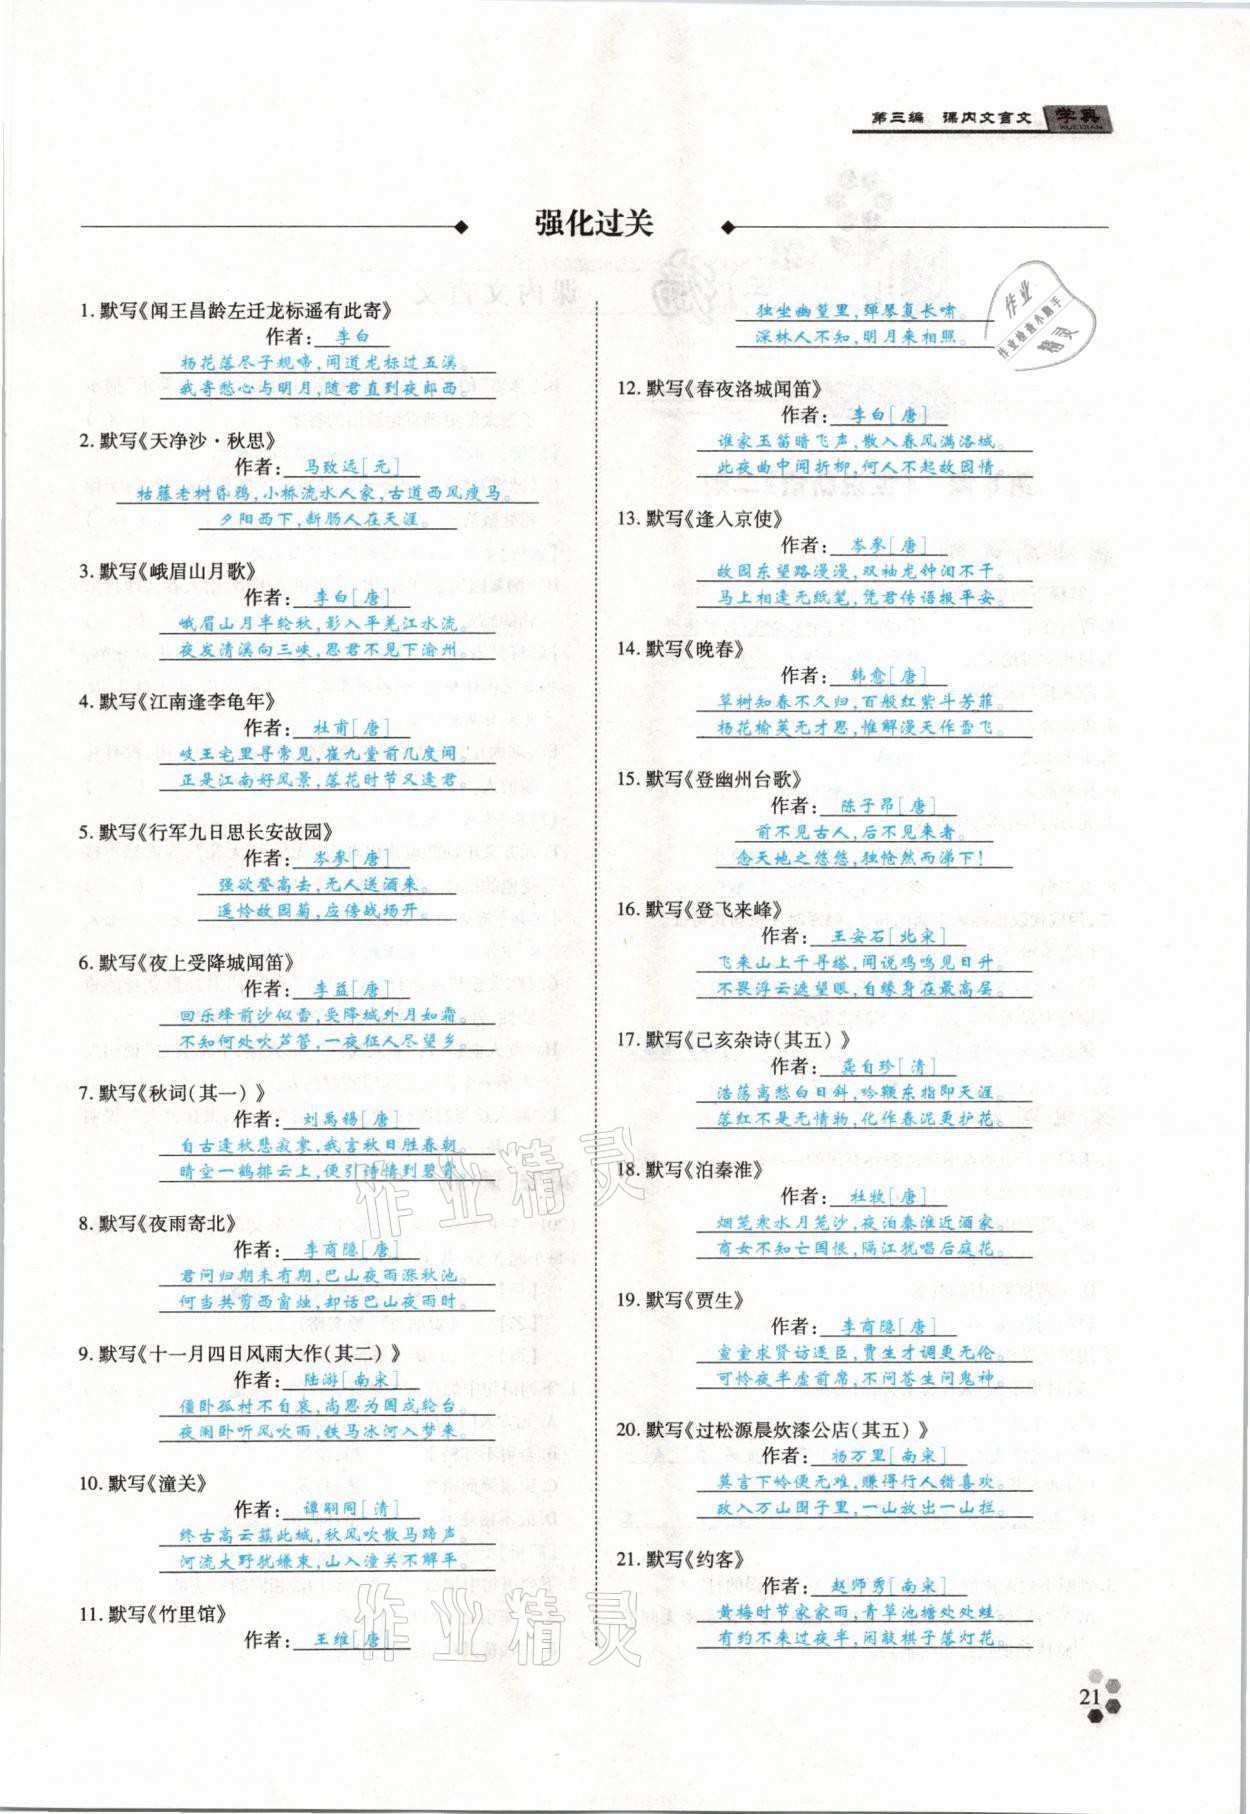 第三编 课内文言文 学典
XUE DIAN
强化过关
1. 默写《闻王昌龄左迁龙标遥有此寄》
作者: 李白
杨花落尽子规啼,闻道龙标过五溪。
我寄愁心与明月,随君直到夜郎西。
2. 默写《天净沙·秋思》
作者: 马致远[元]
枯藤老树昏鸦,小桥流水人家,古道西风瘦马。
夕阳西下,断肠人在天涯。
3. 默写《峨眉山月歌》
作者: 李白[唐]
峨眉山月半轮秋,影入平羌江水流。
夜发清溪向三峡,思君不见下渝州。
4. 默写《江南逢李龟年》
作者: 杜甫[唐]
岐王宅里寻常见,崔九堂前几度闻。
正是江南好风景,落花时节又逢君。
5. 默写《行军九日思长安故园》
作者: 岑参[唐]
强欲登高去,无人送酒来。
遥怜故园菊,应傍战场开。
6. 默写《夜上受降城闻笛》
作者: 李益[唐]
回乐烽前沙似雪,受降城外月如霜。
不知何处吹芦管,一夜征人尽望乡。
7. 默写《秋词(其一)》
作者: 刘禹锡[唐]
自古逢秋悲寂寥,我言秋日胜春朝。
晴空一鹤排云上,便引诗情到碧霄。
8. 默写《夜雨寄北》
作者: 李商隐[唐]
君问归期未有期,巴山夜雨涨秋池。
何当共剪西窗烛,却话巴山夜雨时。
9. 默写《十一月四日风雨大作(其二)》
作者: 陆游[南宋]
僵卧孤村不自哀,尚思为国戍轮台。
夜阑卧听风吹雨,铁马冰河入梦来。
10. 默写《潼关》
作者: 谭嗣同[清]
终古高云簇此城,秋风吹散马蹄声。
河流大野犹嫌束,山入潼关不解平。
11. 默写《竹里馆》
作者: 王维[唐]
独坐幽篁里,弹琴复长啸。
深林人不知,明月来相照。
12. 默写《春夜洛城闻笛》
作者: 李白[唐]
谁家玉笛暗飞声,散入春风满洛城。
此夜曲中闻折柳,何人不起故园情。
13. 默写《逢入京使》
作者: 岑参[唐]
故园东望路漫漫,双袖龙钟泪不干。
马上相逢无纸笔,凭君传语报平安。
14. 默写《晚春》
作者: 韩愈[唐]
草树知春不久归,百般红紫斗芳菲。
杨花榆荚无才思,惟解漫天作雪飞。
15. 默写《登幽州台歌》
作者: 陈子昂[唐]
前不见古人,后不见来者。
念天地之悠悠,独怆然而涕下!
16. 默写《登飞来峰》
作者: 王安石[北宋]
飞来山上千寻塔,闻说鸡鸣见日升。
不畏浮云遮望眼,自缘身在最高层。
17. 默写《己亥杂诗(其五)》
作者: 龚自珍[清]
浩荡离愁白日斜,吟鞭东指即天涯。
落红不是无情物,化作春泥更护花。
18. 默写《泊秦淮》
作者: 杜牧[唐]
烟笼寒水月笼沙,夜泊秦淮近酒家。
商女不知亡国恨,隔江犹唱后庭花。
19. 默写《贾生》
作者: 李商隐[唐]
宣室求贤访逐臣,贾生才调更无伦。
可怜夜半虚前席,不问苍生问鬼神。
20. 默写《过松源晨炊漆公店(其五)》
作者: 杨万里[南宋]
莫言下岭便无难,赚得行人错喜欢。
政入万山围子里,一山放出一山拦。
21. 默写《约客》
作者: 赵师秀[南宋]
黄梅时节家家雨,青草池塘处处蛙。
有约不来过夜半,闲敲棋子落灯花。
作业
作业检查小助手
精灵
作业精灵
作业精灵
21